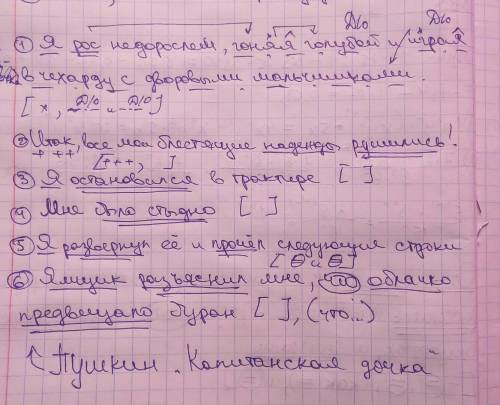 Д/О Д/О
① Я рос недорослем, гоняя голубей и играя
в чехарду с дворовыми мальчишками.
[ x, Д/О и Д/О ]
② Итак, все мои блестящие надежды рушились!
[+++, ]
③ Я остановился в трактире [ ]
④ Мне было стыдно [ ]
⑤ Я развернул её и прочёл следующие строки
[ и ]
⑥ Ямщик разъяснил мне, что облачко
предвещало буран [ ], (что...)
Пушкин „Капитанская дочка"